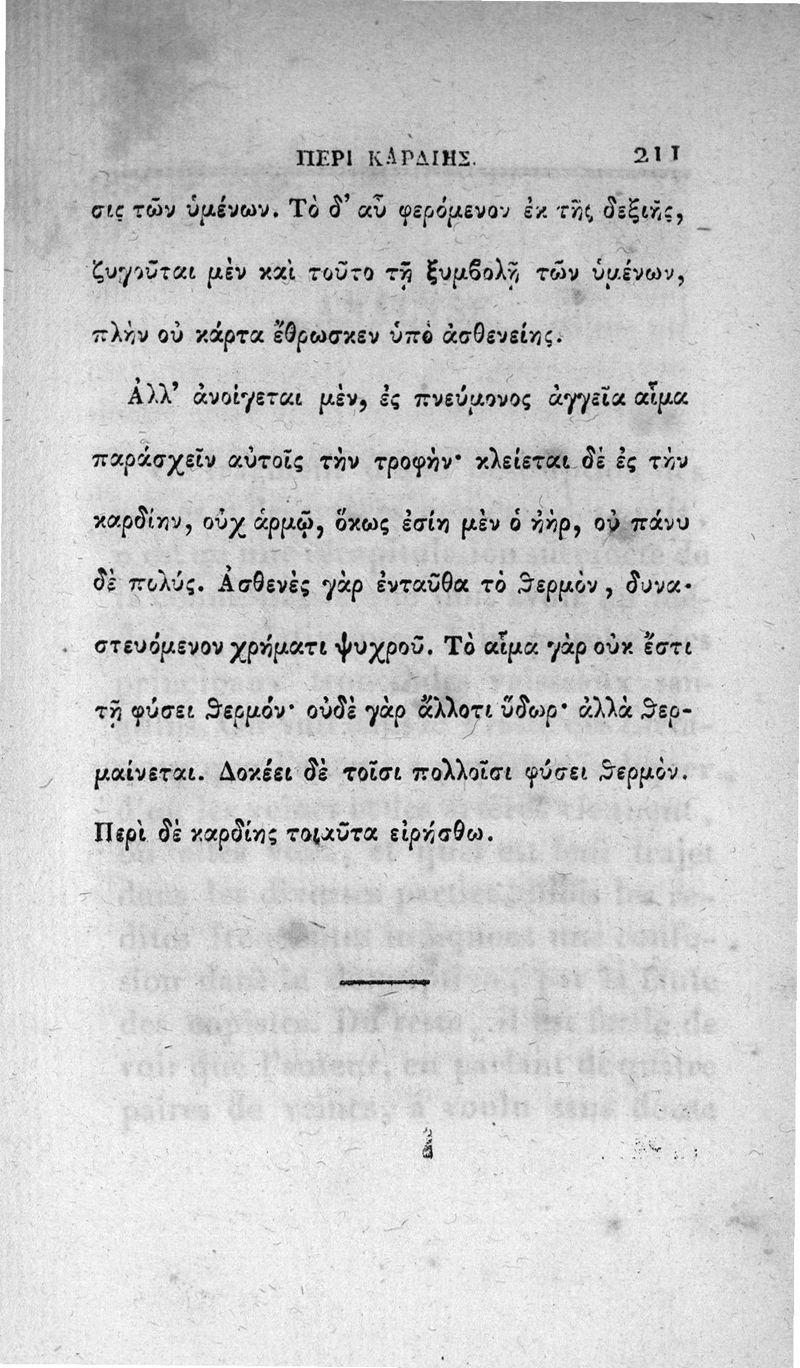 ΠΕΡΙ ΚΑΡΔΙΗΣ. 211
σις τῶν ὑμένων. Τὸ δ’ αὖ φερόμενον ἐκ τῆς δεξιῆς,
ζυγοῦται μὲν καὶ τοῦτο τῇ ξυμϐολῇ τῶν ὑμένων,
πλὴν οὐ κάρτα ἔθρωσκεν ὑπὸ ἀσθενείης.
Ἀλλ’ ἀνοίγεται μὲν, ἐς πνεύμονος ἀγγεῖα αἷμα
παράσχεῖν αὐτοῖς τὴν τροφήν· κλείεται δὲ ἐς τὴν
καρδίην, οὐχ ἁρμῷ, ὅκως ἐσίῃ μὲν ὁ ἠὴρ, οὐ πάνυ
δὲ πολύς. Ἀσθενὲς γὰρ ἐνταῦθα τὸ ϑερμὸν, δυνα-
στευόμενον χρήματι ψυχροῦ. Τὸ αἷμα γὰρ οὐκ ἔστι
τῇ φύσει ϑερμόν· οὐδὲ γὰρ ἄλλοτι ὕδωρ· ἀλλὰ ϑερ-
μαίνεται. Δοκέει δὲ τοῖσι πολλοῖσι φύσει ϑερμὸν.
Περὶ δὲ καρδίης τοιαῦτα εἰρήσθω.